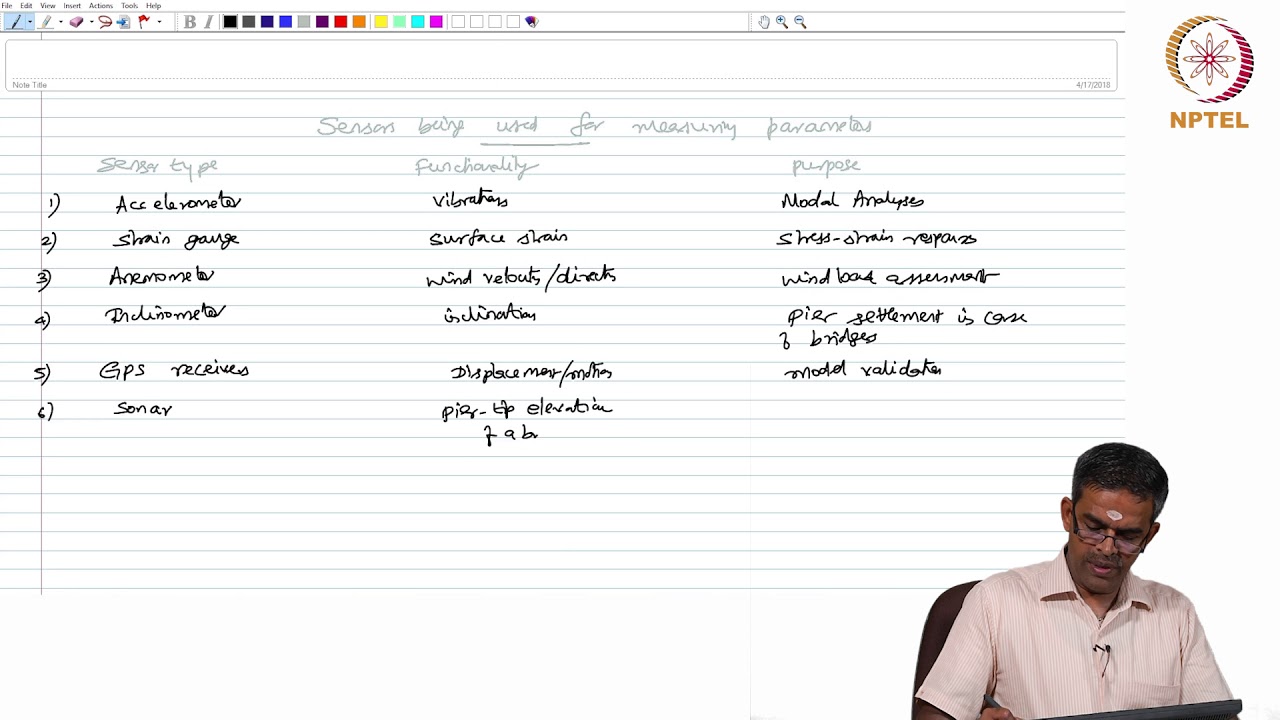 File Edit View Insert Actions Tools Help
B I
Note Title
4/17/2018
NPTEL
Sensors being used for measuring parameters
Sensor type Functionality purpose
1) Accelerometer vibrations Modal Analyses
2) strain gauge surface strain stress-strain response
3) Anemometer wind velocity/direction wind load assessment
4) Inclinometer inclination pier settlement in case
of bridges
5) GPS receivers Displacement/motion model validation
6) sonar pier-tip elevation
of a br